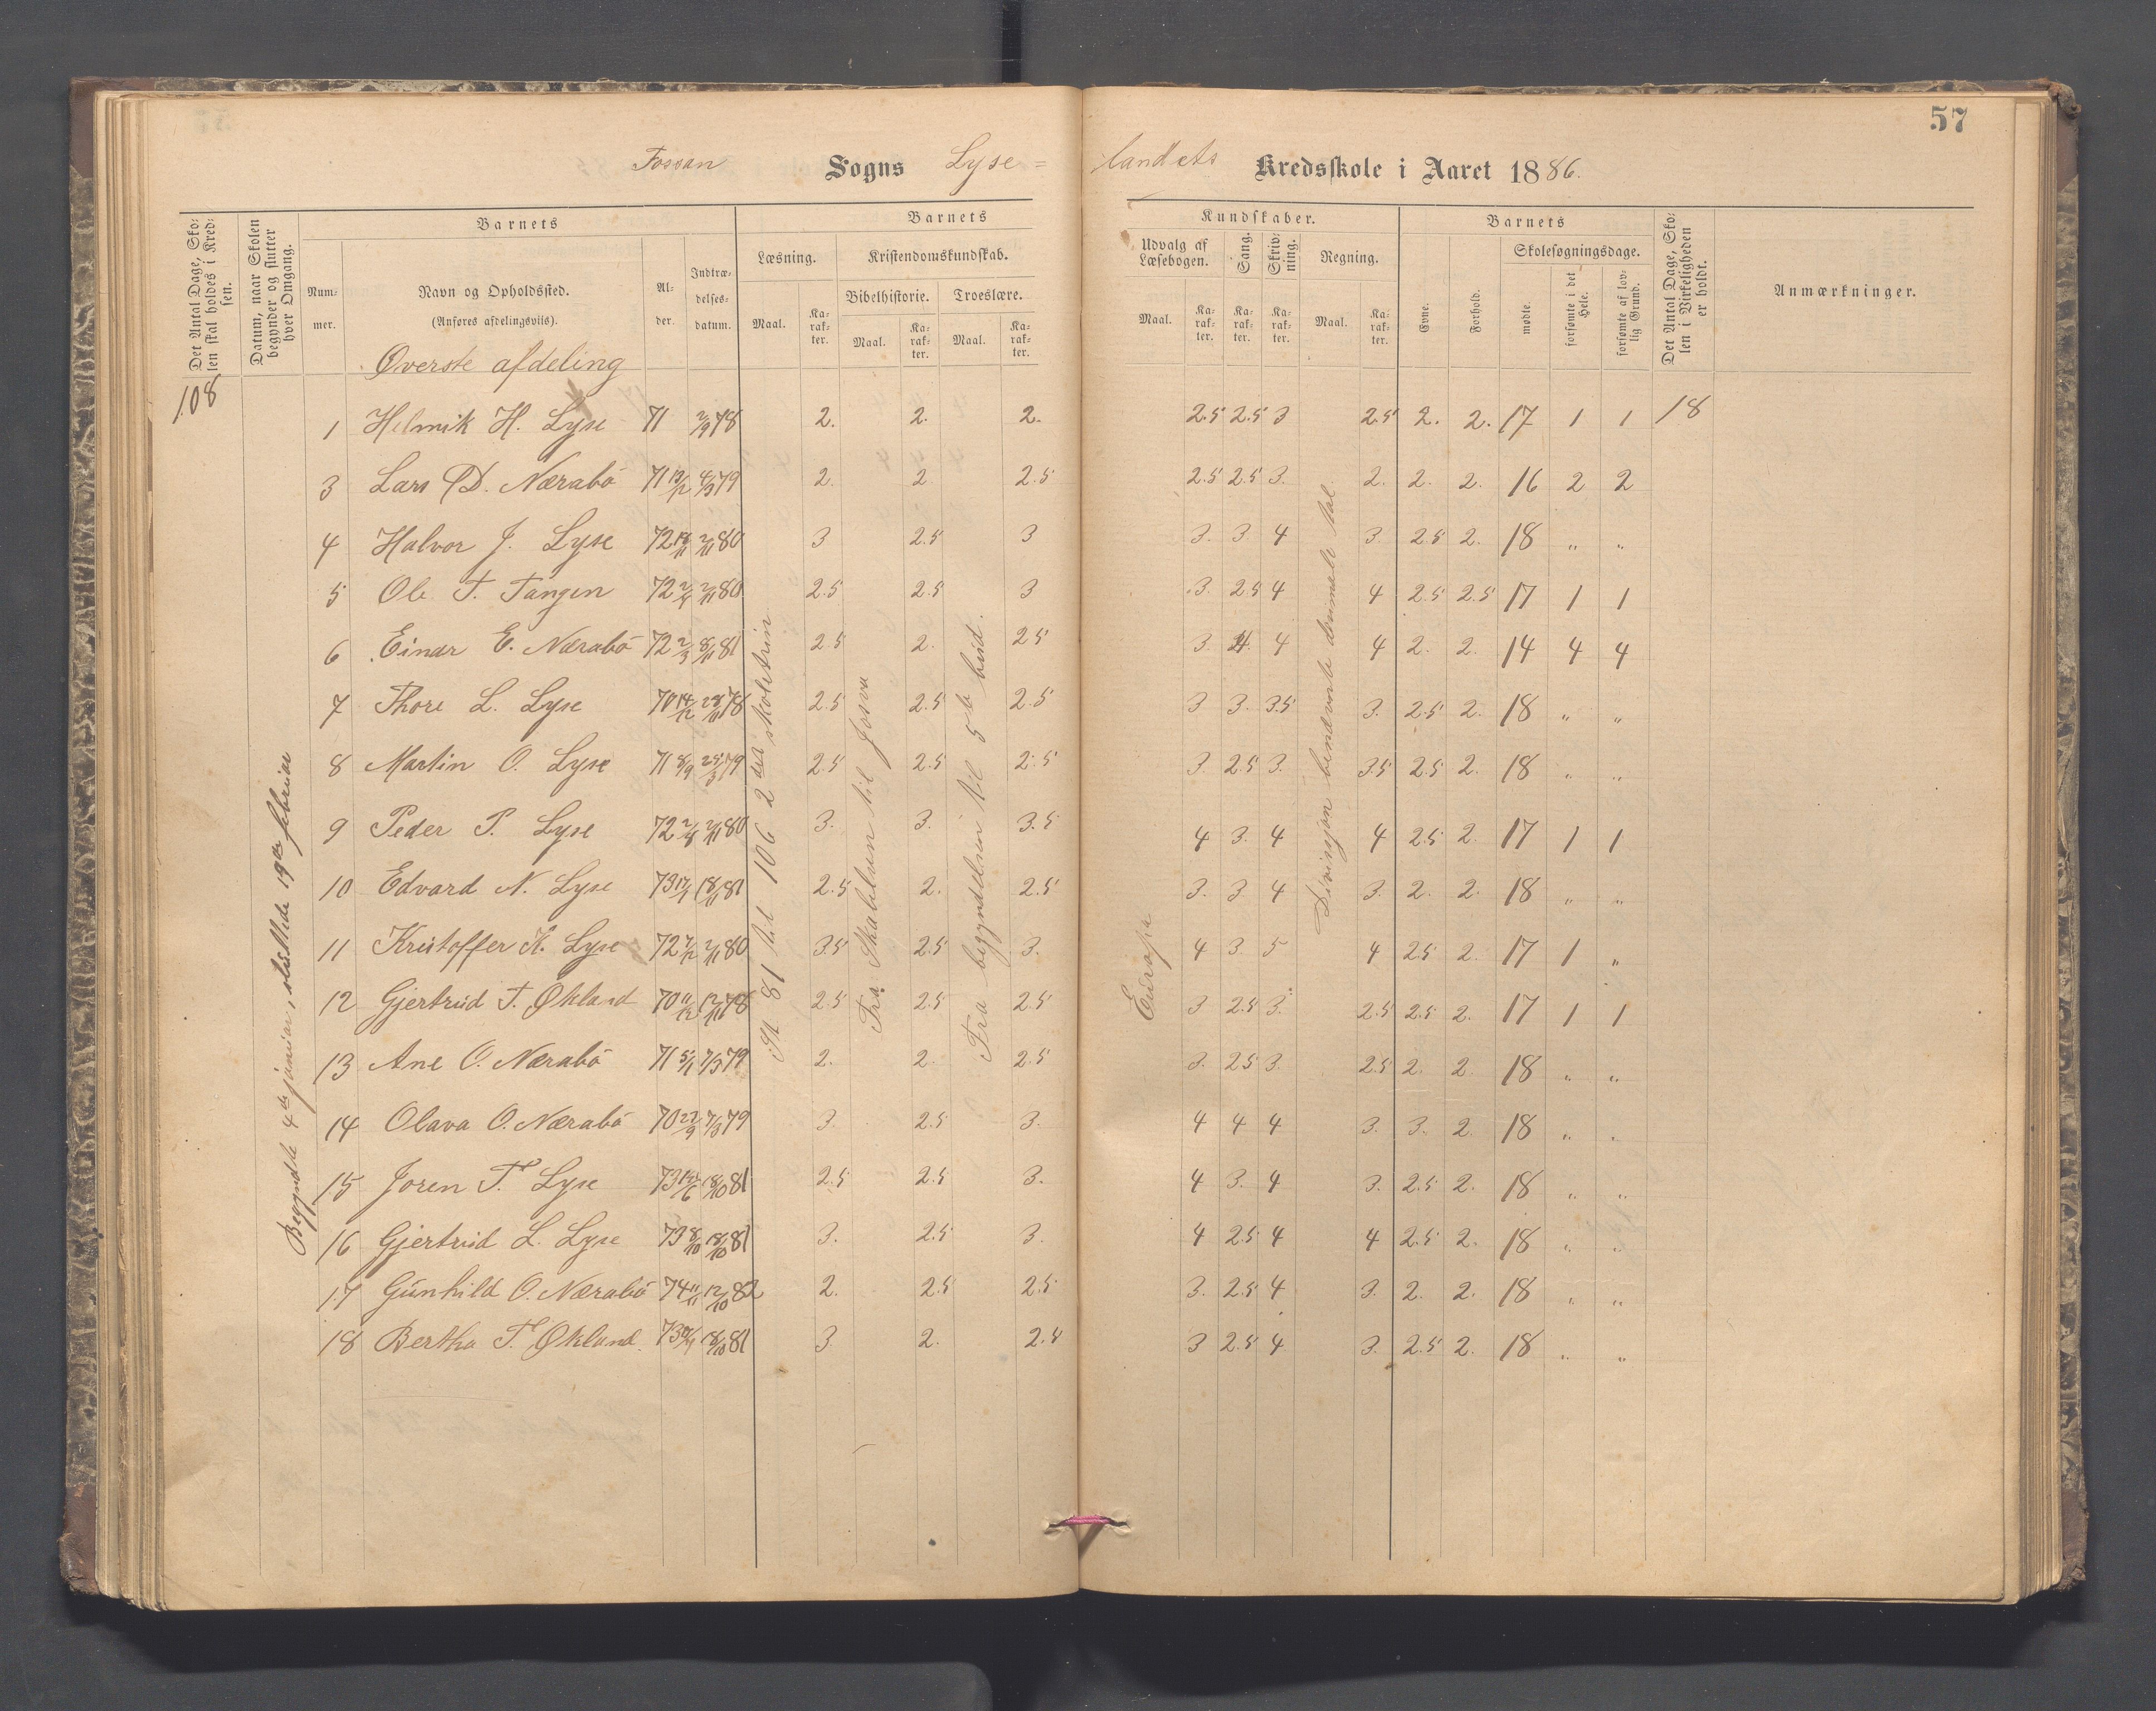 57
Fossan Sogns Lyse=
landets Kredsskole i Aaret 1886.
Det Antal Dage, Sko-
len skal holdes i Kred-
sen.
Datum, naar Skolen
begynder og slutter
hver Omgang.
Barnets
Num-
mer.
Navn og Opholdssted.
(Anføres afdelingsviis).
Al-
der.
Indtræ-
delses-
datum.
Barnets
Læsning.
Maal.
Ka-
rak-
ter.
Kristendomskundskab.
Bibelhistorie.
Maal.
Ka-
rak-
ter.
Troeslære.
Maal.
Ka-
rak-
ter.
Kundskaber.
Udvalg af
Læsebogen.
Maal.
Ka-
rak-
ter.
Sang.
Ka-
rak-
ter.
Skriv-
ning.
Ka-
rak-
ter.
Regning.
Maal.
Ka-
rak-
ter.
Barnets
Evne.
Forhold.
Skolesøgningsdage.
mødte.
forsømte i det
Hele.
forsømte af lov-
lig Grund.
Det Antal Dage, Sko-
len i Virkeligheden
er holdt.
Anmærkninger.
Øverste afdeling
108
1 Helmik H. Lyse 71 2/9 78 2. 2. 2. 2.5 2.5 3 2.5 2. 2. 17 1 1 18
3 Lars D. Nærabö 71 13/12 4/3 79 2. 2 2.5 2.5 2.5 3. 2. 2. 2. 16 2 2
4 Halvor J. Lyse 72 18/11 2/11 80 3 2.5 3 3. 3 4 3 2.5 2. 18 " "
5 Ole T. Tangen 72 2/4 2/11 80 2.5 2.5 3 3. 2.5 4 4 2.5 2.5 17 1 1
6 Einar E. Nærabö 72 2/3 8/11 81 2.5 2. 2.5 3. 4 4 4 2. 2. 14 4 4
7 Thore L. Lyse 70 14/12 28/11 78 2.5 2.5 2.5 3 3. 3.5 3. 2.5 2. 18 " "
8 Martin O. Lyse 71 8/9 25/3 79 2.5 2.5 2.5 3. 2.5 3. 3.5 2.5 2. 18 " "
9 Peder P. Lyse 72 2/8 2/11 80 3. 3. 3.5 4 3. 4 4 2.5 2. 17 1 1
10 Edvard N. Lyse 73 17/1 18/11 81 2.5 2. 2.5 3. 3 4 3. 2. 2. 18 " "
11 Kristoffer K. Lyse 72 7/12 2/11 80 3.5 2.5 3. 4 3 5 4 2.5 2. 17 1 "
12 Gjertrud T. Økland 70 11/12 12/11 78 2.5 2.5 2.5 3 2.5 3. 2.5 2.5 2. 17 1 1
13 Ane O. Nærabö 71 5/1 7/3 79 2. 2. 2.5 3. 2.5 3. 2.5 2. 2. 18 " "
14 Olava O. Nærabö 70 27/9 7/3 79 3. 2.5 3. 4 4 4 3. 3. 2. 18 " "
15 Joren T. Lyse 73 15/6 18/10 81 2.5 2.5 3. 4 3. 4 3. 2.5 2. 18 " "
16 Gjertrud L. Lyse 73 8/10 18/10 81 3. 2.5 3. 4 2.5 4 4 2.5 2. 18 " "
17 Gunhild O. Nærabö 74 11/11 12/10 82 2. 2.5 2.5 3. 2.5 4 3. 2. 2. 18 " "
18 Bertha T. Økland 73 18/10 81 3. 2. 2.4 3 2.5 4 3. 2.5 2. 18 " "
Begyndte 4de januar, sluttede 19de februar
St 81 til 106 2 det skoletrin
Fra Skabelsen til Josva
Fra begyndelsen til 5te bud.
Europa
Divisjon benævnte desimale tal.